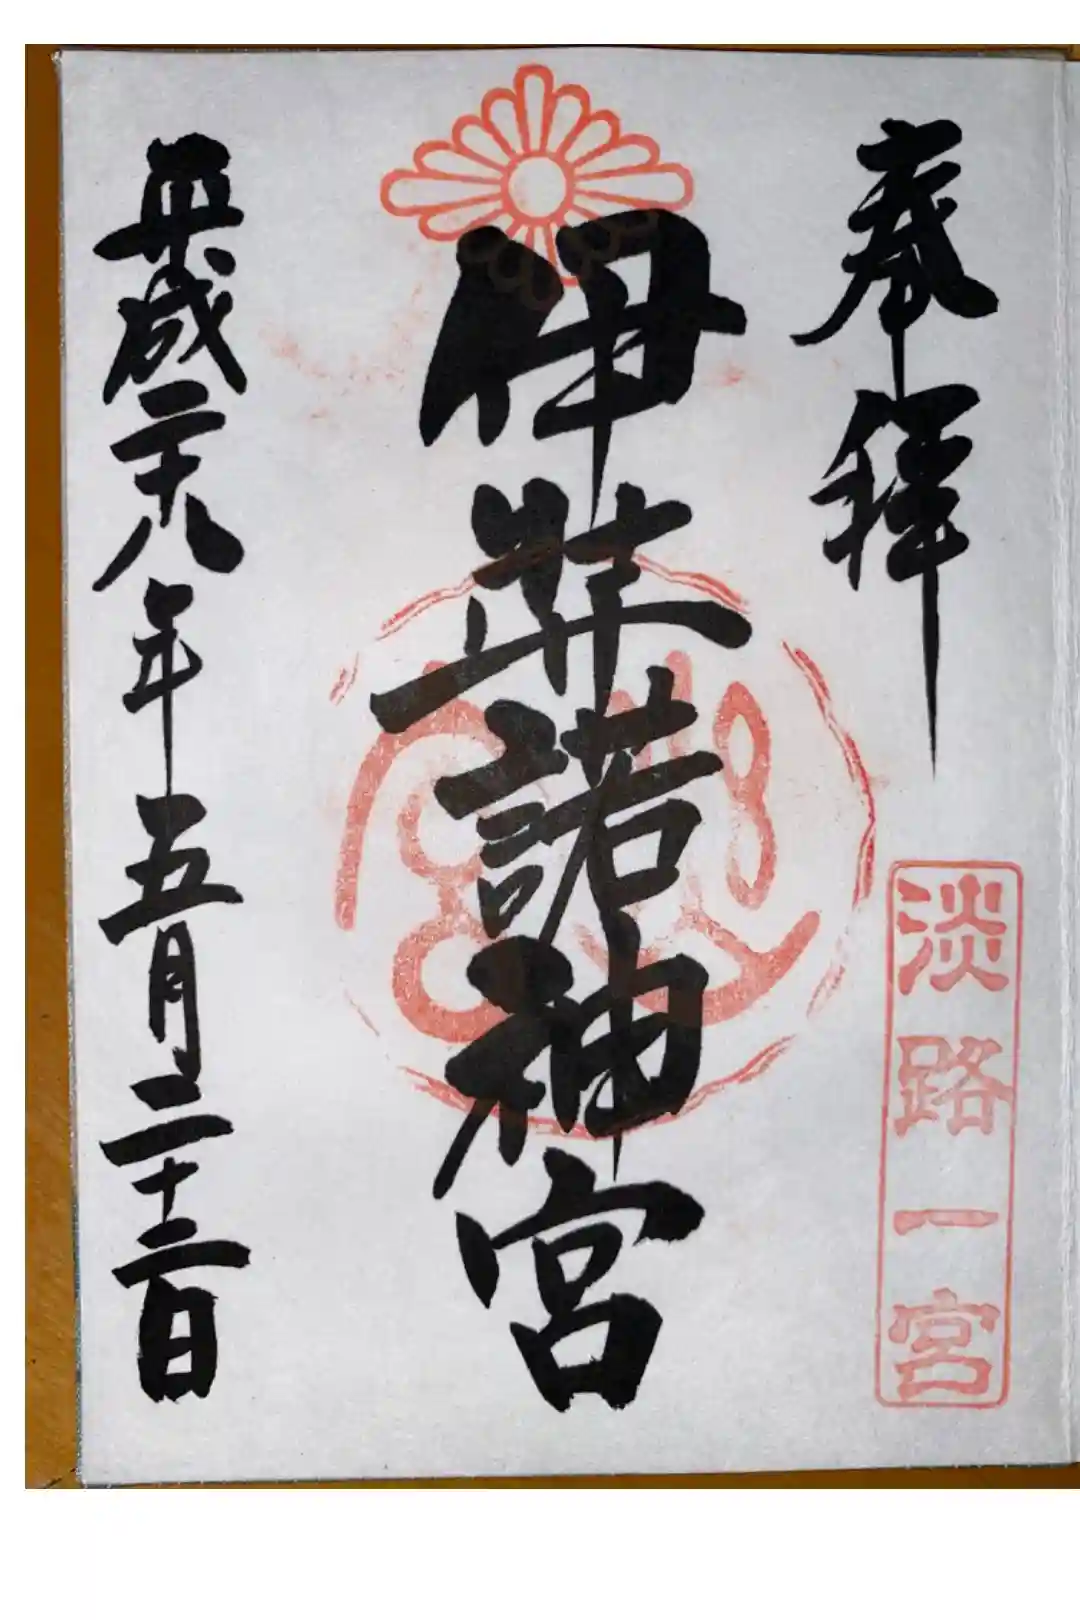 奉拝
淡路一宮
伊弉諾神宮
平成二十八年五月二十二日